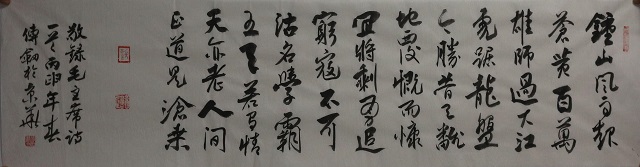 鐘山風雨起
蒼黄百萬
雄師過大江
虎踞龍盤
今勝昔天翻
地覆慨而慷
宜將剩勇追
窮寇不可
沽名學霸
王天若有情
天亦老人間
正道是滄桑
敬録毛主席詩
一首丙申年春